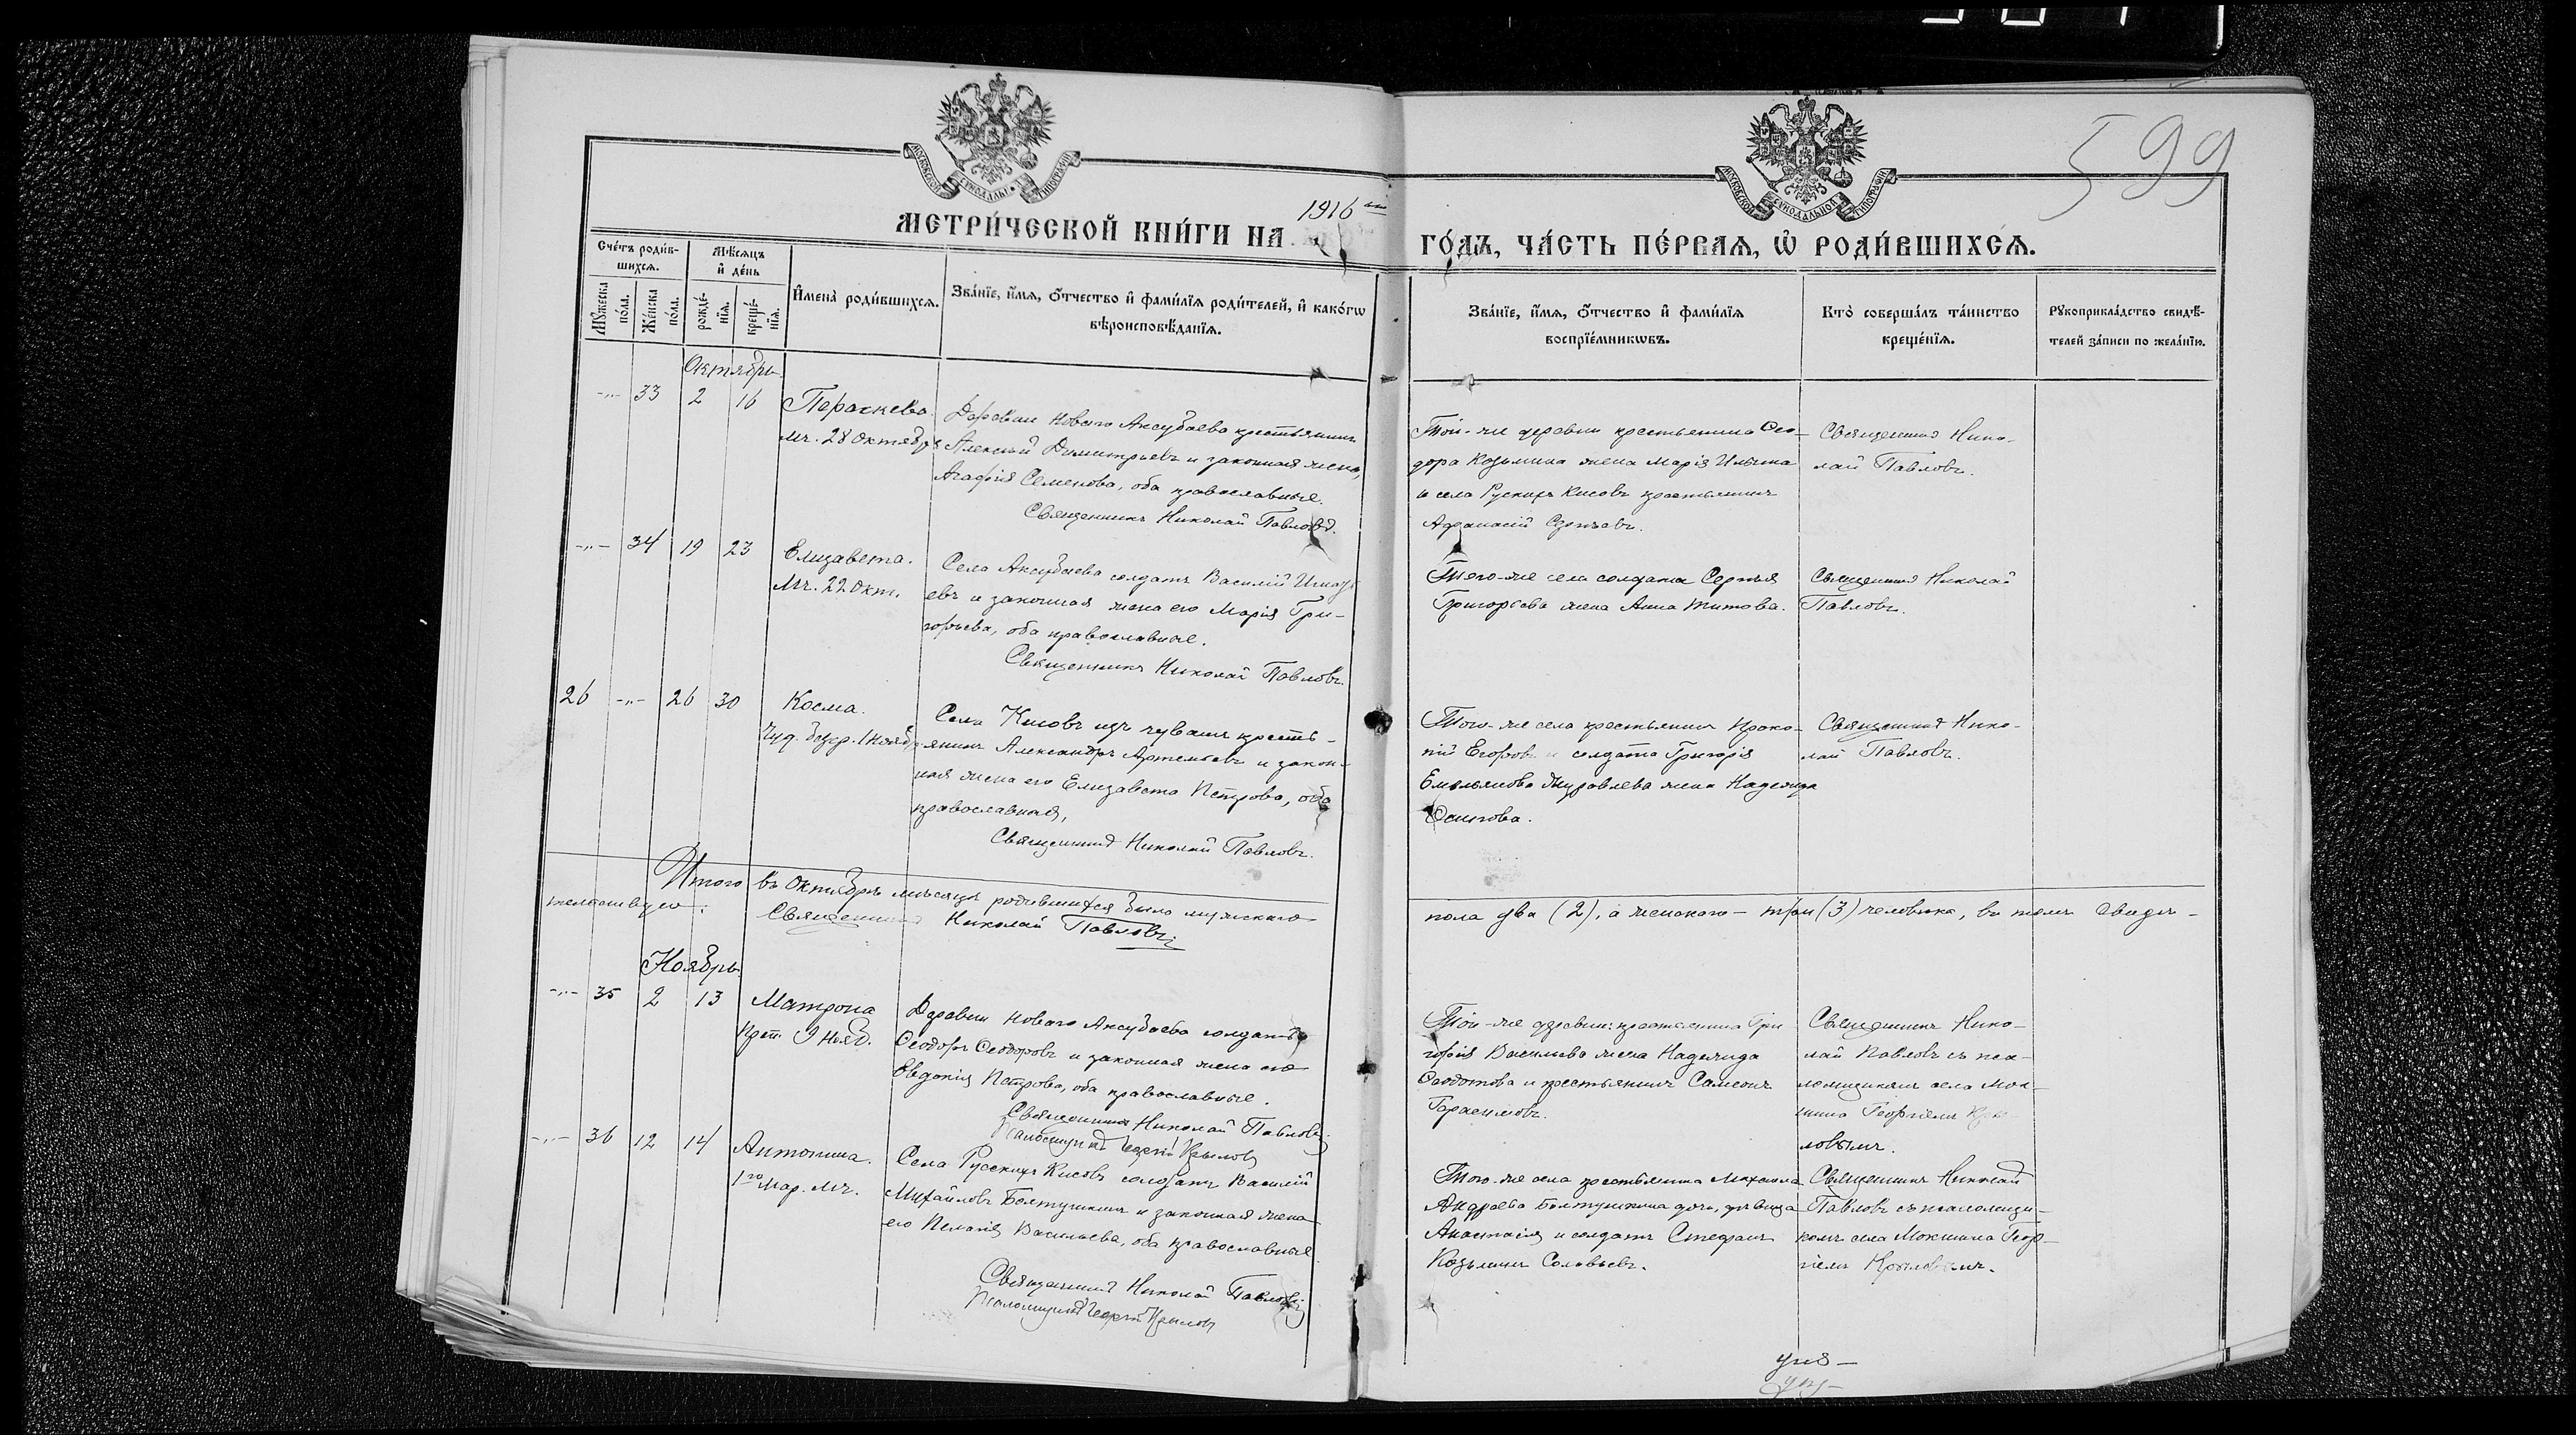 МОСКОВСКОЙ СѴНОДАЛЬНОЙ ТИПОГРАФІИ
МОСКОВСКОЙ СѴНОДАЛЬНОЙ ТИПОГРАФІИ
599
1916
МЕТРИ́ЧЕСКОЙ КНИ́ГИ НА
ГО́ДЪ, ЧА́СТЬ ПЕ́РВАЯ, Ѽ РОДИ́ВШИХСЯ.
Сче́тъ роди́в-
шихся.
Мѣ́сяцъ
и҆ де́нь
Мꙋ́жеска
по́ла.
Же́нска
по́ла.
рожде́-
нїя.
креще́-
нїя.
И҆мена̀ роди́вшихся.
Зва́нїе, и҆́мя, ѻ҆́тчество и҆ фами́лїя роди́телей, и҆ како́гѡ
вѣроисповѣ́данїя.
Зва́нїе, и҆́мя, ѻ҆́тчество и҆ фами́лїя
воспрїе́мникѡвъ.
Кто̀ соверша́лъ та́инство
креще́нїя.
Рꙋкоприкла́дство свидѣ́-
телей за́писи по жела́нїю.
Октябрь.
-„- 33 2 16
Параскева.
мч. 28 октября
Деревни Новаго Аксубаева крестьянинъ
Алексѣй Димитріевъ и законная жена,
Агафія Семенова, оба православные.
Священникъ Николай Павловъ.
Той-же деревни крестьянина Ѳео-
дора Козьмина жена Марія Ильина
и села Рускихъ Кисовъ крестьянинъ
Афанасій Сергѣевъ.
Священникъ Нико-
лай Павловъ.
-„- 34 19 23
Елизавета.
Мч. 22 Окт.
Села Аксубаева солдатъ Василій
евъ и законная жена его Марія Гри-
горьева, оба православные.
Священникъ Николай Павловъ.
Того-же села солдата Сергѣя
Григорьева жена Анна Титова.
Священникъ Николай
Павловъ.
26 -„- 26 30
Косма.
Чуд. безср. 1 нояб.
Села Кисовъ изъ чувашъ кресть-
янинъ Александръ Артемьевъ и закон-
ная жена его Елизавета Петрова, оба
православная,
Священникъ Николай Павловъ.
Того-же села крестьянинъ Проко-
пій Егоровъ и солдата Григорія
Емельянова Журавлева жена Надежда
Осипова.
Священникъ Нико-
лай Павловъ.
Итого въ Октябрѣ мѣсяцѣ родившихся было мужскаго
пола два (2), а женскаго - три (3) человѣка, въ томъ свидѣ-
тельствую:
Священникъ Николай Павловъ
Ноябрь.
-„- 35 2 13
Матрона
Прп. 9 Нояб.
Деревни Новаго Аксубаева солдатъ
Ѳеодоръ Ѳеодоровъ и законная жена его
Евдокія Петрова, оба православные.
Священникъ Николай Павловъ
Псаломщикъ Георгій Крыловъ
Той-же деревни: крестьянина Гри
горія Васильева жена Надежда
Ѳеодотова и крестьянинъ Самсонъ
Герасимовъ.
Священникъ Нико-
лай Павловъ съ пса-
ломщикомъ села Мок-
шина Георгіемъ Кры-
ловымъ.
-„- 36 12 14
Антонина.
1го Мар. Мч.
Села Русскихъ Кисовъ солдатъ Василій
Михайловъ Болтушкинъ и законная жена
его Пелагія Васильева, оба православные
Священникъ Николай Павловъ
Псаломщикъ Георгій Крыловъ
Того-же села крестьянина Михаила
Андреева Болтушкина дочь, дѣвица
Анастасія и солдатъ Стефанъ
Козьминъ Соловьевъ.
Священникъ Николай
Павловъ съ псаломщи-
комъ села Мокшина Геор-
гіемъ Крыловымъ.